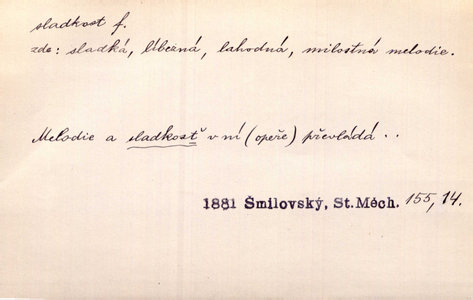 sladkost f.
zde: sladká, líbezná, lahodná, milostná melodie.
Melodie a sladkosť v ní (opeře) převládá . .
1881 Šmilovský, St. Měch. 155, 14.